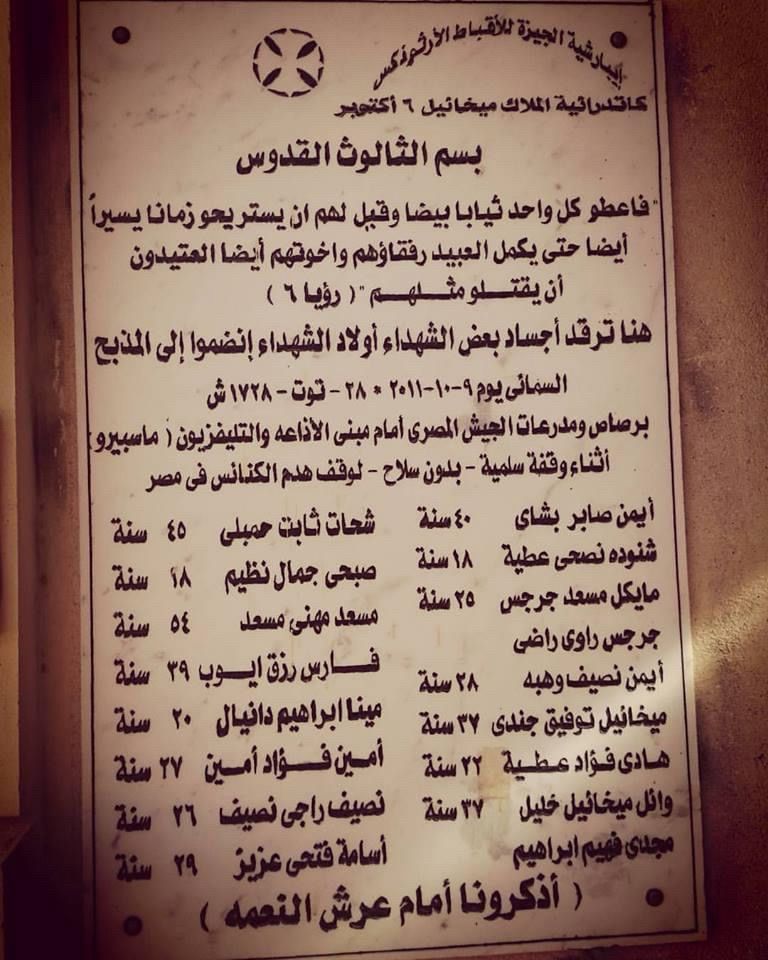 إيبارشية الجيزة للأقباط الأرثوذكس
كاتدرائية الملاك ميخائيل ٦ أكتوبر
بسم الثالوث القدوس
"فاعطو كل واحد ثيابا بيضا وقيل لهم ان يستريحو زمانا يسيراً
أيضا حتى يكمل العبيد رفقاؤهم واخوتهم أيضا العتيدون
أن يقتلو مثلهم" ( رؤيا ٦ )
هنا ترقد أجساد بعض الشهداء أولاد الشهداء إنضموا إلى المذبح
السمائى يوم ٩-١٠-٢٠١١ * ٢٨ - توت - ١٧٢٨ ش
برصاص ومدرعات الجيش المصرى أمام مبنى الأذاعه والتليفزيون ( ماسبيرو )
أثناء وقفة سلمية - بدون سلاح - لوقف هدم الكنائس فى مصر
أيمن صابر بشاى ٤٠ سنة
شنوده نصحى عطية ١٨ سنة
مايكل مسعد جرجس ٢٥ سنة
جرجس راوى راضى
أيمن نصيف وهبه ٢٨ سنة
ميخائيل توفيق جندى ٣٧ سنة
هادى فؤاد عطية ٢٢ سنة
وائل ميخائيل خليل ٣٧ سنة
مجدى فهيم ابراهيم
شحات ثابت حمبلى ٤٥ سنة
صبحى جمال نظيم ١٨ سنة
مسعد مهنى مسعد ٥٤ سنة
فارس رزق ايوب ٣٩ سنة
مينا ابراهيم دانيال ٢٠ سنة
أمين فؤاد أمين ٢٧ سنة
نصيف راجى نصيف ٢٦ سنة
أسامة فتحى عزيز ٢٩ سنة
( أذكرونا أمام عرش النعمه )